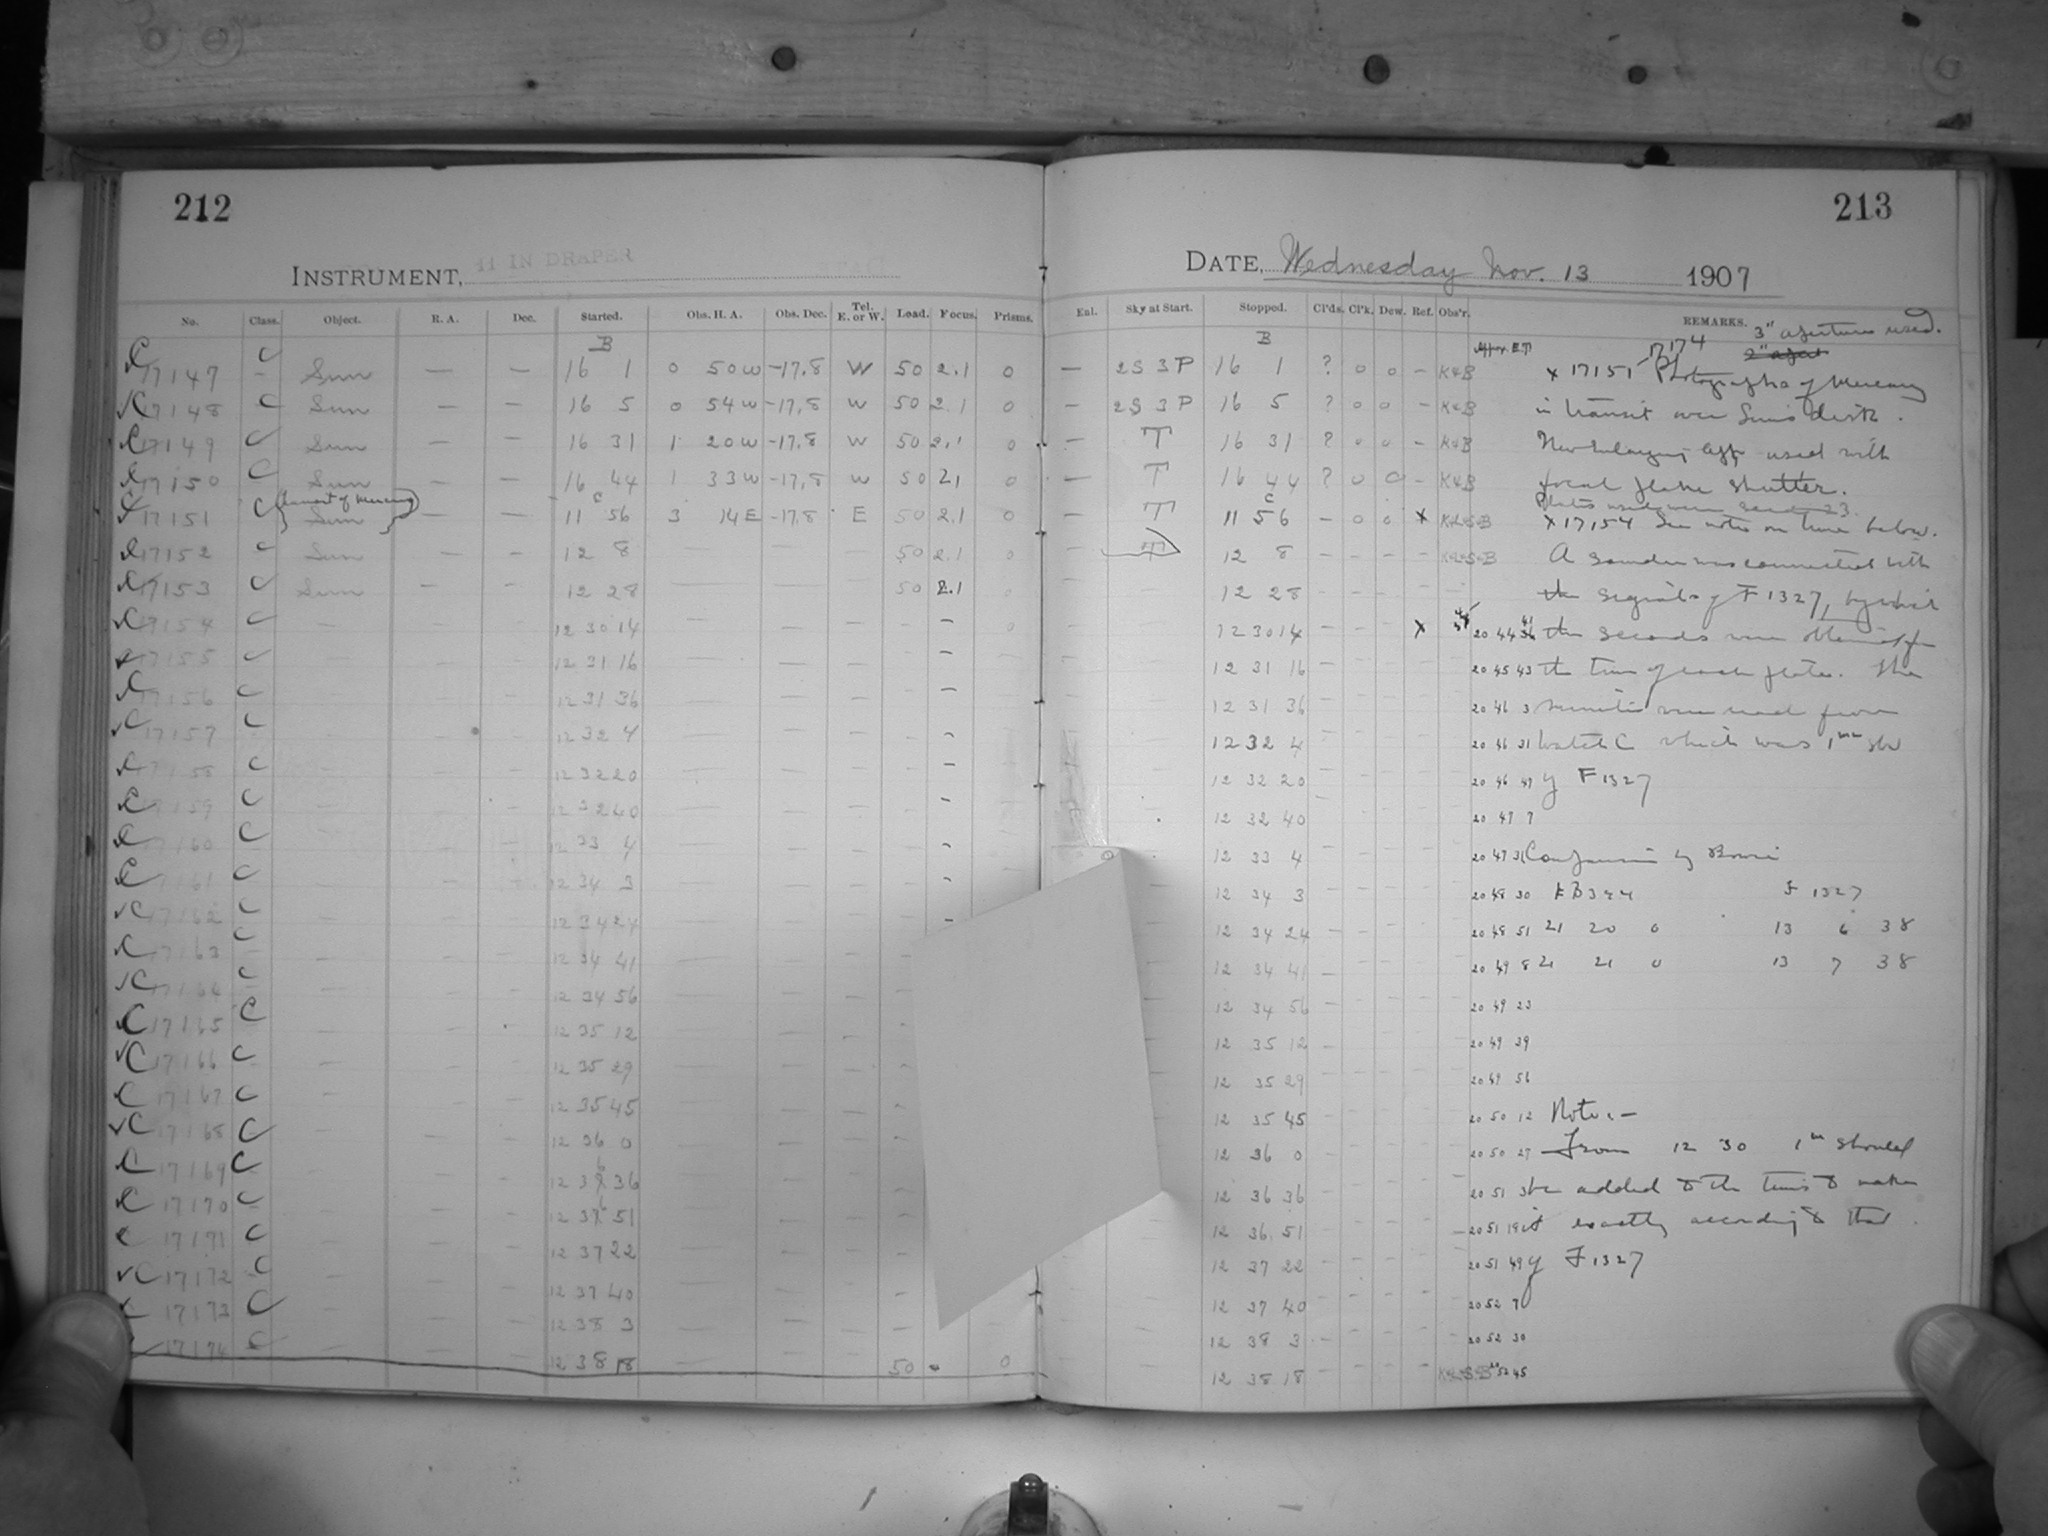 212
INSTRUMENT, 11 IN DRAPER
No. Class. Object. R. A. Dec. Started. Obs. H. A. Obs. Dec. Tel. E. or W. Load. Focus. Prisms.
B
C 17147 C Sun — — 16 1 0 50 W -17.8 W 50 2.1 0
C 17148 C Sun — — 16 5 0 54 W -17.8 W 50 2.1 0
C 17149 C Sun — — 16 31 1 20 W -17.8 W 50 2.1 0
C 17150 C Sun — — 16 44 1 33 W -17.8 W 50 2.1 0
(transit of Mercury) C
C 17151 C Sun — — 11 56 3 14 E -17.8 E 50 2.1 0
C 17152 C Sun — — 12 8 50 2.1 0
C 17153 C Sun — — 12 28 50 2.1 0
C 17154 C 12 30 14 0
17155 C 12 31 16
C 17156 C 12 31 36
C 17157 C 12 32 4
C 17158 C 12 32 20
C 17159 C 12 32 40
C 17160 C 12 33 4
C 17161 C 12 34 3
C 17162 C 12 34 24
C 17163 C 12 34 41
C 17164 C 12 34 56
C 17165 C 12 35 12
C 17166 C 12 35 29
C 17167 C 12 35 45
C 17168 C 12 36 0
C 17169 C 12 36 36
C 17170 C 12 36 51
C 17171 C 12 37 22
C 17172 C 12 37 40
C 17173 C 12 38 3
17174 C 12 38 18 50 0
213
DATE, Wednesday Nov. 13 1907
Enl. Sky at Start. Stopped. Cl'ds. Cl'k. Dew. Ref. Obs'r. REMARKS.
3" aperture used.
B
— 2S 3P 16 1 ? 0 0 - K&B x 17151-17174 Photographs of Mercury
— 2S 3P 16 5 ? 0 0 - K&B in transit over Sun's disk.
— T 16 31 ? 0 0 - K&B New enlarging app. used with
— T 16 44 ? 0 0 - K&B focal plane shutter.
C
Plates used were seed 23
— T 11 56 - 0 0 x x 17154 See notes on time below.
— T 12 8 A sounder was connected with
12 28 the signals of F 1327, by which
12 30 14 x 20 44 41 the seconds were
12 31 16 20 45 43 the time of each plate. The
12 31 36 20 46 3 minutes were read from
12 32 4 20 46 31 watch C which was 1m slow
12 32 20 20 46 47 of F 1327
12 32 40 20 47 7
12 33 4 20 47 31 Comparison by
12 34 3 20 48 30 F 1327
12 34 24 20 48 51 21 20 0 13 6 38
12 34 41 20 49 8 21 21 0 13 7 38
12 34 56 20 49 23
12 35 12 20 49 39
12 35 29 20 49 56
12 35 45 20 50 12 Note:—
12 36 0 20 50 27 From 12 30 1m should
12 36 36 20 51 3 be added to the times to make
12 36 51 20 51 18 it exactly according to that
12 37 22 20 51 49 of F 1327
12 37 40 20 52 7
12 38 3 20 52 30
12 38 18 20 52 45